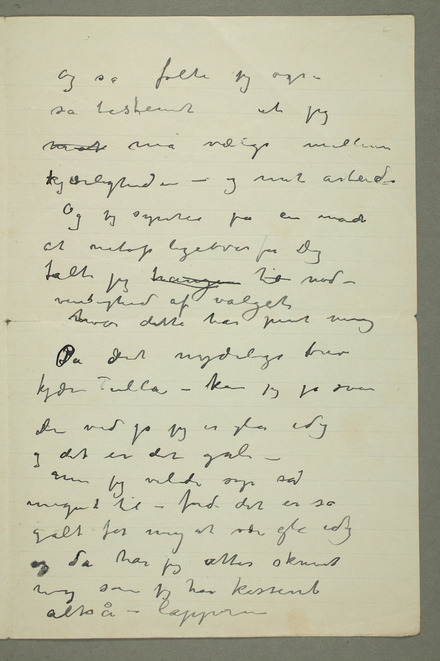 Og så følte jeg også
så bestemt at jeg
må vælge mellem
kjærligheden – og mit arbeide
Og jeg syntes på en måde
at netop ligeover for Dig
følte jeg til nød-
vendighed af valget
hvor dette har pint mig
Da det nydelige brev
kjære Tulla – kan jeg jo svare
Du ved jo jeg er gla i dig
og det er det gale –
jeg vilde sige så
meget til – fordi det er så
galt for mig at være gla i dig
og da har jeg atter skrevet
mig som jeg har
altså – lapperne